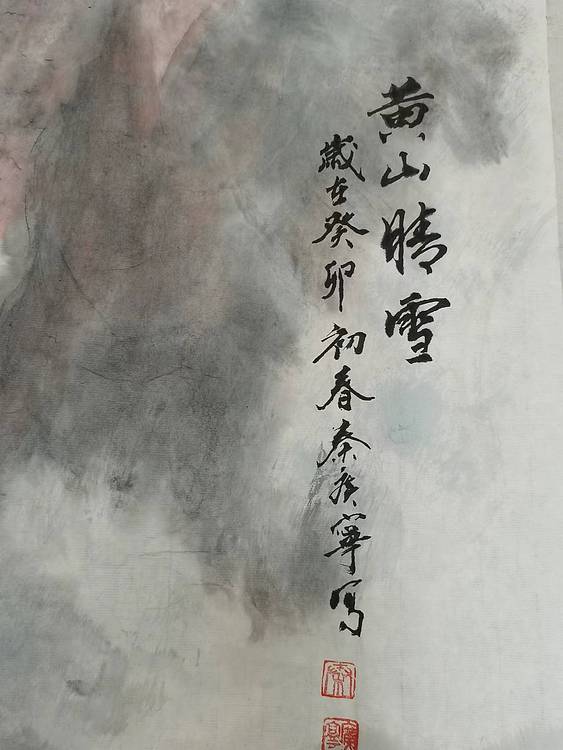 黄山晴雪
歲在癸卯初春秦廣寧写
秦